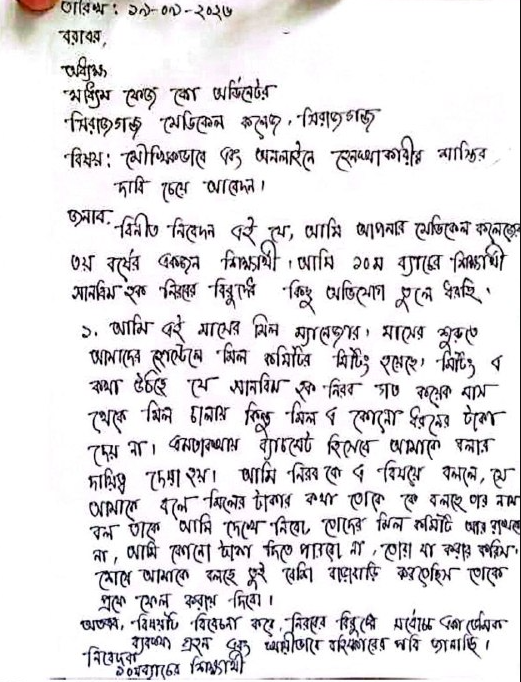 তারিখ: ১৯-০৯-২০২৬
বরাবর,
অধ্যক্ষ
মাধ্যম ফেজ কো অর্ডিনেটর
সিরাজগঞ্জ মেডিকেল কলেজ, সিরাজগঞ্জ
বিষয়: মৌখিকভাবে এবং অনলাইনে হেনস্থাকারীর শাস্তির
দাবি চেয়ে আবেদন।
জনাব,
বিনীত নিবেদন এই যে, আমি আপনার মেডিকেল কলেজের
৩য় বর্ষের একজন শিক্ষার্থী। আমি ১০ম ব্যাচের শিক্ষার্থী
সানবিম হক নিরবের বিরুদ্ধে কিছু অভিযোগ তুলে ধরছি।
১. আমি এই মাসের মিল ম্যানেজার। মাসের শুরুতে
আমাদের হোস্টেলে মিল কমিটির মিটিং হয়েছে। মিটিং এ
কথা উঠছে যে সানবিম হক নিরব গত কয়েক মাস
থেকে মিল চালায় কিন্তু মিল এ কোনো ধরনের টাকা
দেয় না। এমতাবস্থায় ব্যাচমেট হিসেবে আমাকে বলার
দায়িত্ব দেয়া হয়। আমি নিরব কে এ বিষয়ে বললে, সে
আমাকে বলে মিলের টাকার কথা তোকে কে বলছে তার নাম
বল তাকে আমি দেখে নিবো, তোদের মিল কমিটি আর রাখবো
না, আমি কোনো টাকা দিতে পারবো না, তোরা যা করার করিস।
শেষে আমাকে বলছে তুই বেশি বাড়াবাড়ি করতেছিস তোকে
প্রফে ফেল করায় দিবো।
অতএব, বিষয়টি বিবেচনা করে, নিরবের বিরুদ্ধে সর্বোচ্চ একাডেমিক
ব্যবস্থা গ্রহন এবং স্থায়ীভাবে বহিষ্কারের দাবি জানাচ্ছি।
নিবেদক
১০মব্যাচের শিক্ষার্থী